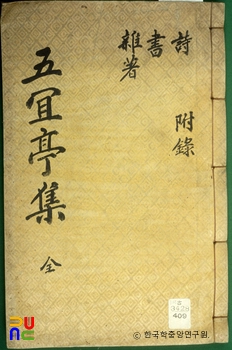 詩
書
雜著
附錄
五宜亭集
全
409
ⓒ 한국학중앙연구원